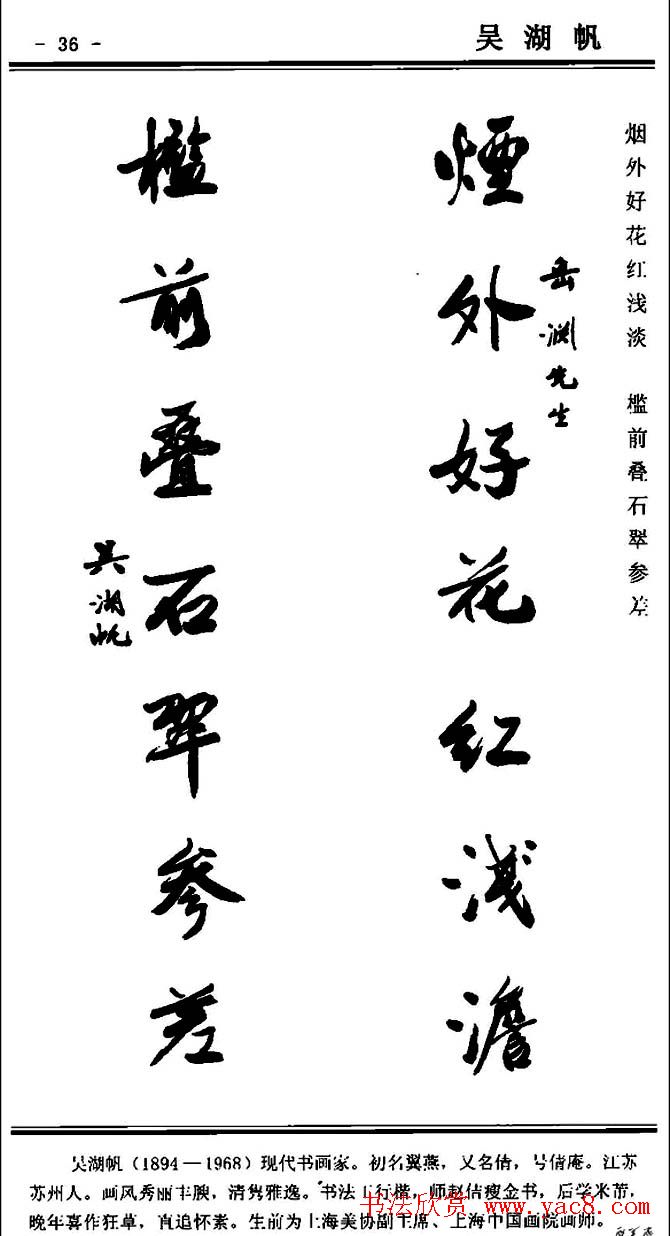 - 36 -
吴湖帆
烟外好花红浅淡 槛前叠石翠参差
煙外好花紅淺澹
岳渊先生
檻前叠石翠參差
吴湖帆
吴湖帆（1894—1968）现代书画家。初名翼燕，又名倩，号倩庵。江苏
苏州人。画风秀丽丰腴，清隽雅逸。书法工行楷，师赵佶瘦金书，后学米芾，
晚年喜作狂草，直追怀素。生前为上海美协副主席、上海中国画院画师。
书法欣赏 www.yac8.com